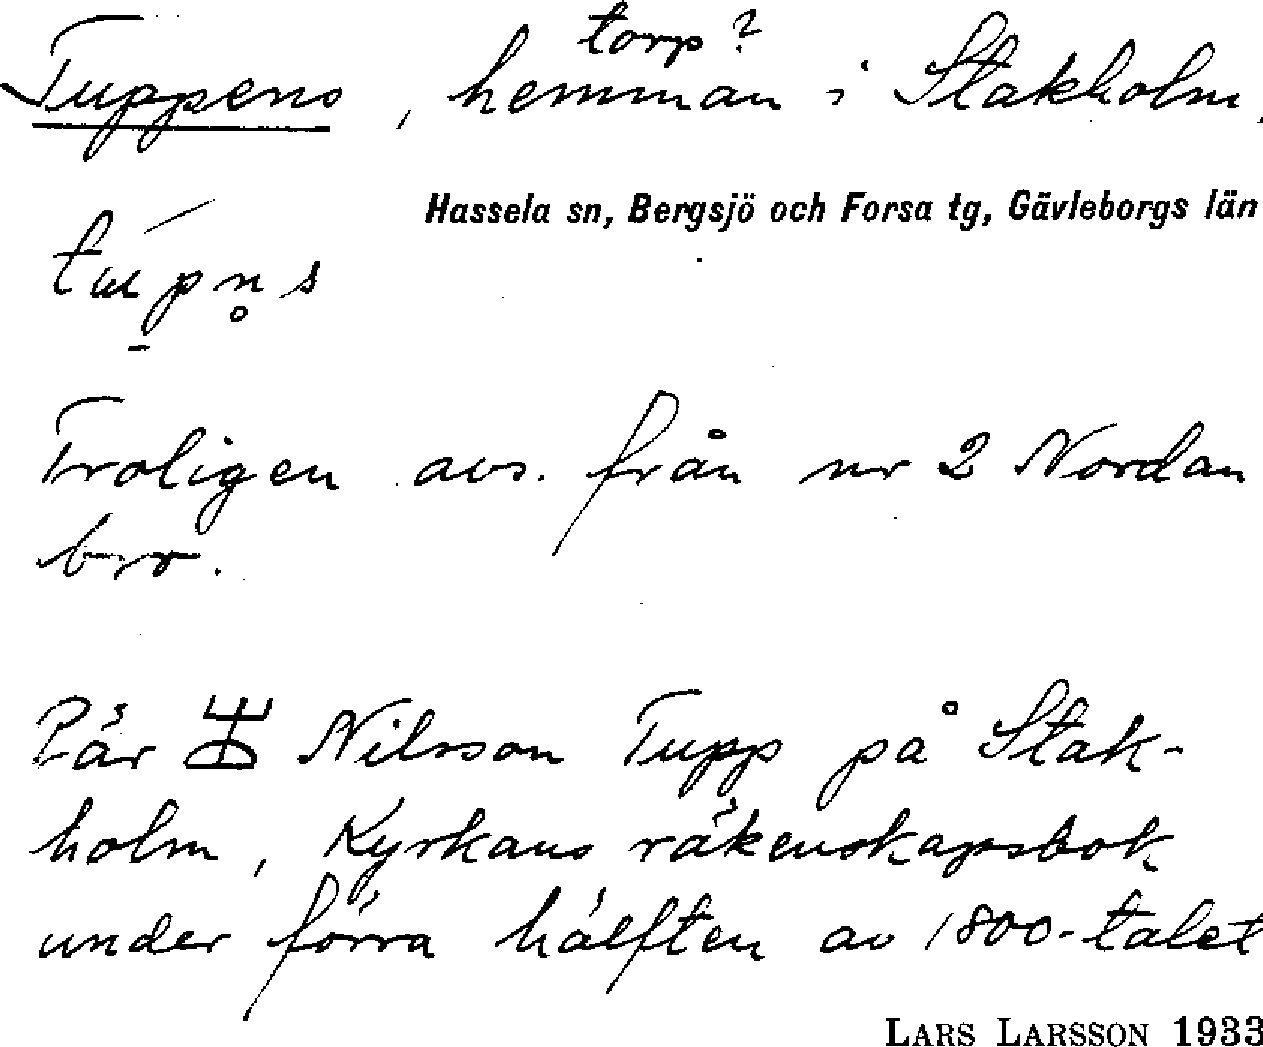 torp?
Tuppens, hemman i Stakholm.
Hassela sn, Bergsjö och Forsa tg, Gävleborgs län
Troligen avs. från nr 2 Nordan
bro.
Pär Nilsson Tupp på Stak-
holm, Kyrkans räkenskapsbok
under förra hälften av 1800-talet
LARS LARSSON 1933